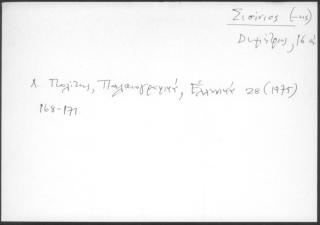 Σισίνιος (-ης)
Δημήτριος, 16 α.
Λ. Πολίτης, Παλαιογραφικά, Ελληνικά 28 (1975)
168-171